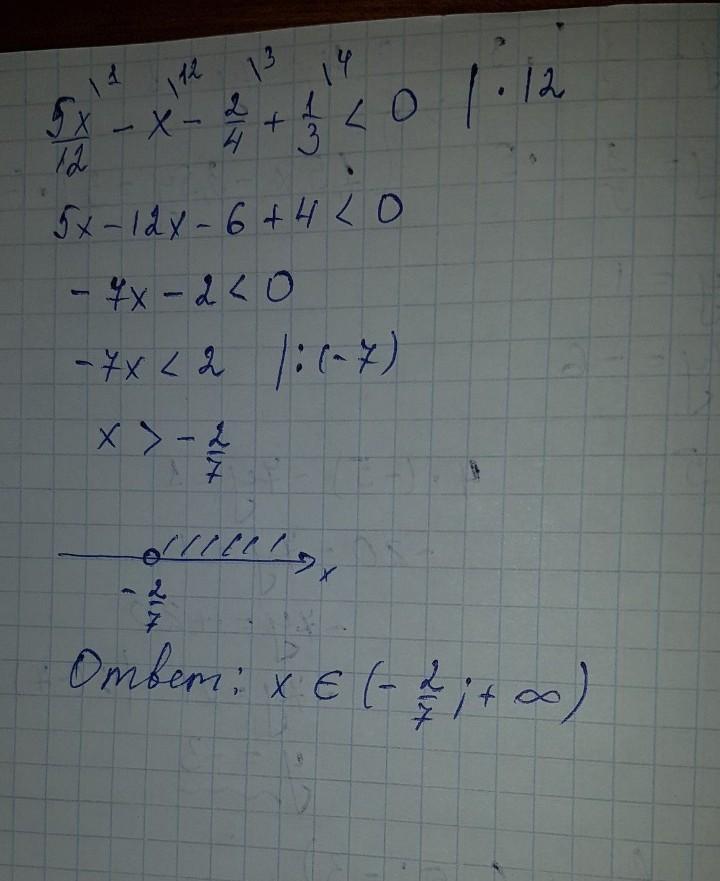 \1 \12 \3 \4
5x/12 - x - 2/4 + 1/3 < 0 | · 12
5x - 12x - 6 + 4 < 0
- 7x - 2 < 0
- 7x < 2 | : (- 7)
x > - 2/7
x
- 2/7
Ответ: x ∈ (- 2/7 ; + ∞)